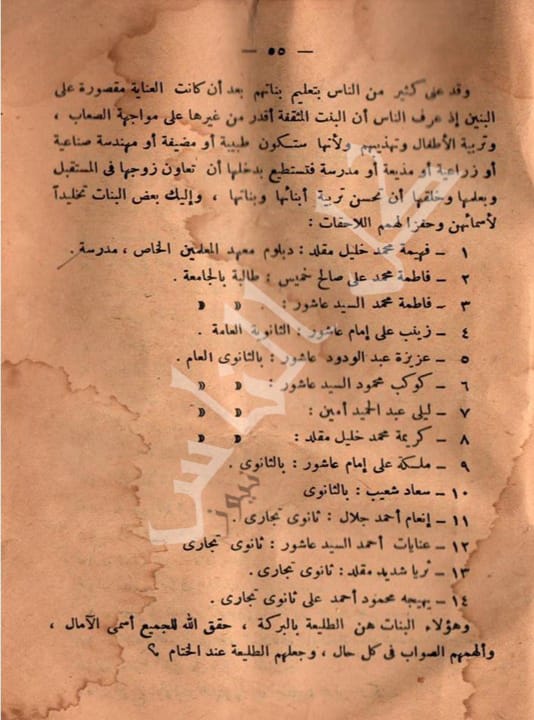 — ٥٥ —
وقد عنى كثير من الناس بتعليم بناتهم بعد أن كانت العناية مقصورة على
البنين إذ عرف الناس أن البنت المثقفة أقدر من غيرها على مواجهة الصعاب ،
وتربية الأطفال وتهذيبهم ولأنها ستكون طبيبة أو مضيفة أو مهندسة صناعية
أو زراعية أو مذيعة أو مدرسة فتستطيع بدخلها أن تعاون زوجها فى المستقبل
وبعلمها وخلقها أن تحسن تربية أبنائها وبناتها ، وإليك بعض البنات تخليداً
لأسمائهن وحفزا لهمم اللاحقات :
١ - فهيمة محمد خليل مقلد : دبلوم معهد المعلمين الخاص ، مدرسة .
٢ - فاطمة محمد على صالح خميس : طالبة بالجامعة .
٣ - فاطمة محمد السيد عاشور : . » »
٤ - زينب على إمام عاشور : الثانوية العامة .
٥ - عزيزة عبد الودود عاشور : بالثانوى العام .
٦ - كوكب محمود السيد عاشور : » »
٧ - ليلى عبد الحميد أمين : » »
٨ - كريمة محمد خليل مقلد : » »
٩ - ملكة على إمام عاشور : بالثانوى .
١٠ - سعاد شعيب : بالثانوى
١١ - إنعام أحمد جلال : ثانوى تجارى .
١٢ - عنايات أحمد السيد عاشور : ثانوى تجارى
١٣ - ثريا شديد مقلد : ثانوى تجارى .
١٤ - بهيجه محمود أحمد على ثانوى تجارى .
وهؤلاء البنات هن الطليعة بالبركة ، حقق الله للجميع أسمى الآمال ،
وألهمهم الصواب فى كل حال ، وجعلهم الطليعة عند الختام ؟
نيوز